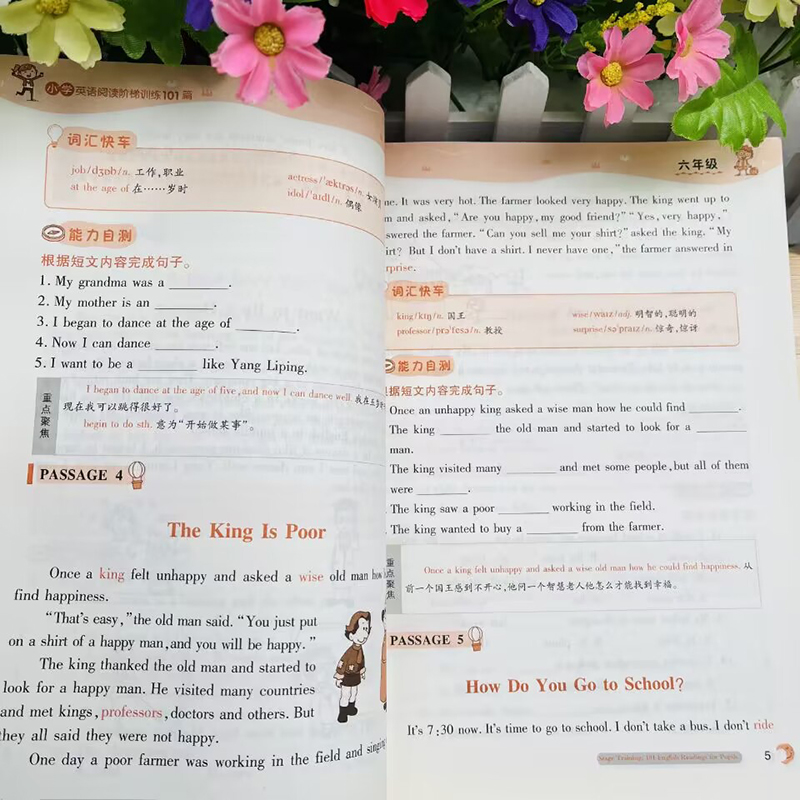 小学英语阅读阶梯训练101篇
词汇快车
job/dʒɒb/n. 工作,职业
at the age of 在……岁时
actress/'æktrəs/n.
idol/'aɪdl/n. 偶像
能力自测
根据短文内容完成句子。
1. My grandma was a ________.
2. My mother is an ________.
3. I began to dance at the age of ________.
4. Now I can dance ________.
5. I want to be a ________ like Yang Liping.
重点聚焦
I began to dance at the age of five, and now I can dance well. 我在五岁
现在我可以跳得很好了。
begin to do sth. 意为“开始做某事”。
PASSAGE 4
The King Is Poor
Once a king felt unhappy and asked a wise old man how
find happiness.
“That's easy,” the old man said. “You just put
on a shirt of a happy man, and you will be happy.”
The king thanked the old man and started to
look for a happy man. He visited many countries
and met kings, professors, doctors and others. But
they all said they were not happy.
One day a poor farmer was working in the field and singing
六年级
me. It was very hot. The farmer looked very happy. The king went up to
and asked, “Are you happy, my good friend?” “Yes, very happy,”
swered the farmer. “Can you sell me your shirt?” asked the king. “My
irt? But I don't have a shirt. I never have one,” the farmer answered in
rprise.
词汇快车
king/kɪŋ/n. 国王
wise/waɪz/adj. 明智的,聪明的
professor/prə'fesə/n. 教授
surprise/sə'praɪz/n. 惊奇,惊讶
能力自测
据短文内容完成句子。
Once an unhappy king asked a wise man how he could find ________.
The king ________ the old man and started to look for a ________
man.
The king visited many ________ and met some people, but all of them
were ________.
The king saw a poor ________ working in the field.
The king wanted to buy a ________ from the farmer.
重点聚焦
Once a king felt unhappy and asked a wise old man how he could find happiness. 从
前一个国王感到不开心,他问一个智慧老人他怎么才能找到幸福。
PASSAGE 5
How Do You Go to School?
It's 7:30 now. It's time to go to school. I don't take a bus. I don't ride
Stage Training: 101 English Readings for Pupils
5